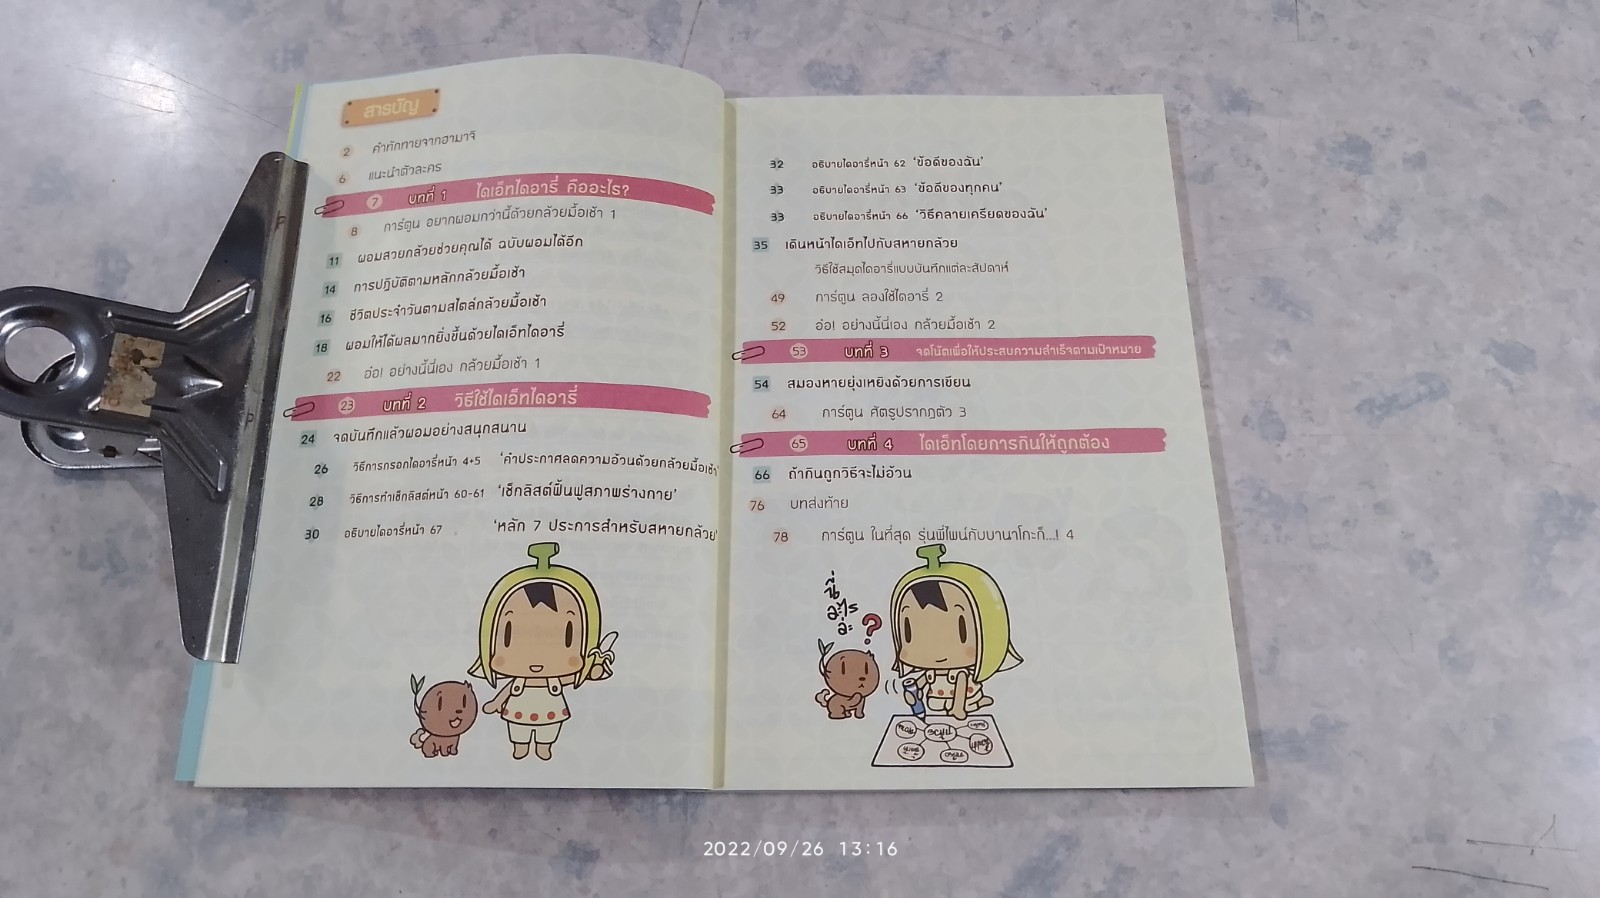 สารบัญ
2 คำทักทายจากฮามาจิ
6 แนะนำตัวละคร
7 บทที่ 1 ไดเอ็ทไดอารี่ คืออะไร?
8 การ์ตูน อยากผอมกว่านี้ด้วยกล้วยมื้อเช้า 1
11 ผอมสวยกล้วยช่วยคุณได้ ฉบับผอมได้อีก
14 การปฏิบัติตามหลักกล้วยมื้อเช้า
16 ชีวิตประจำวันตามสไตล์กล้วยมื้อเช้า
18 ผอมให้ได้ผลมากยิ่งขึ้นด้วยไดเอ็ทไดอารี่
22 อ๋อ! อย่างนี้นี่เอง กล้วยมื้อเช้า 1
23 บทที่ 2 วิธีใช้ไดเอ็ทไดอารี่
24 จดบันทึกแล้วผอมอย่างสนุกสนาน
26 วิธีการกรอกไดอารี่หน้า 4+5 'คำประกาศลดความอ้วนด้วยกล้วยมื้อเช้า'
28 วิธีการทำเช็กลิสต์หน้า 60-61 'เช็กลิสต์ฟื้นฟูสภาพร่างกาย'
30 อธิบายไดอารี่หน้า 67 'หลัก 7 ประการสำหรับสหายกล้วย'
32 อธิบายไดอารี่หน้า 62 'ข้อดีของฉัน'
33 อธิบายไดอารี่หน้า 63 'ข้อดีของทุกคน'
33 อธิบายไดอารี่หน้า 66 'วิธีคลายเครียดของฉัน'
35 เดินหน้าไดเอ็ทไปกับสหายกล้วย
วิธีใช้สมุดไดอารี่แบบบันทึกแต่ละสัปดาห์
49 การ์ตูน ลองใช้ไดอารี่ 2
52 อ๋อ! อย่างนี้นี่เอง กล้วยมื้อเช้า 2
53 บทที่ 3 จดโน้ตเพื่อให้ประสบความสำเร็จตามเป้าหมาย
54 สมองหายยุ่งเหยิงด้วยการเขียน
64 การ์ตูน ศัตรูปรากฏตัว 3
65 บทที่ 4 ไดเอ็ทโดยการกินให้ถูกต้อง
66 ถ้ากินถูกวิธีจะไม่อ้วน
76 บทส่งท้าย
78 การ์ตูน ในที่สุด รุ่นพี่ไพน์กับบานาโกะก็...! 4
นี่
อะไร
อ่ะ
?
2022/09/26 13:16